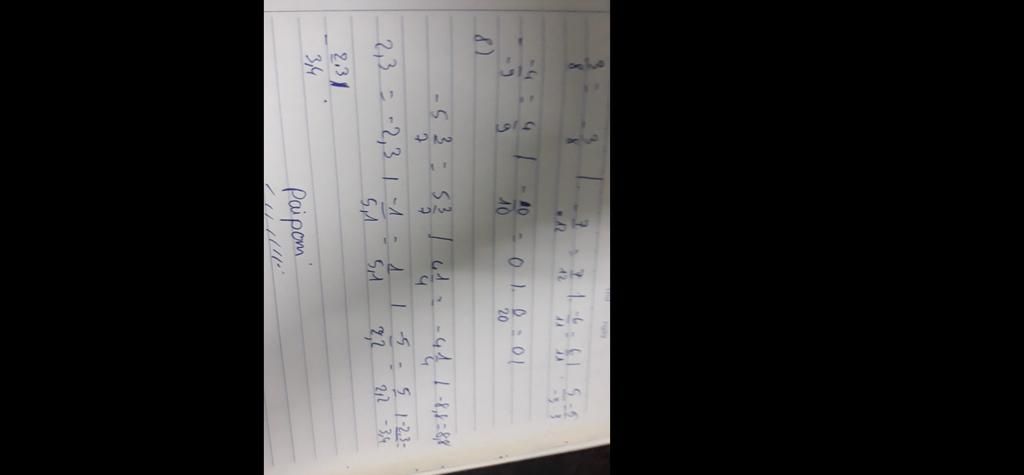 3/8 = -3/8 | -7/12 = 7/12 | -6/11 = 6/11 | 5/-3 = -5/3
- -4/-9 = 4/9 | -0/10 = 0 | 0/20 = 0 |
8)
-5 3/7 = 5 3/7 | 4 1/4 = -4 1/4 | -8,8 = 8,8
2,3 = -2,3 | -1/5,1 = 1/5,1 | -5/2,2 = 5/2,2 | -2,3/-3,4 =
- 2,3/3,4